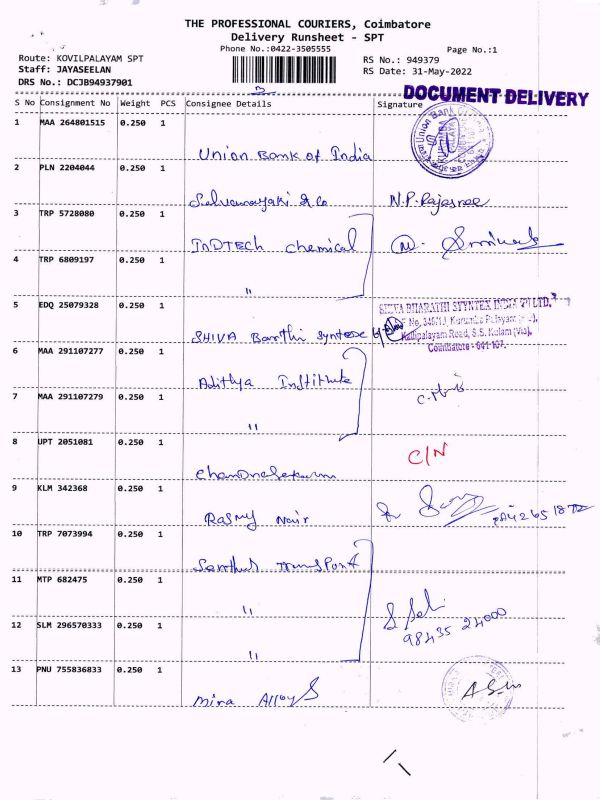 THE PROFESSIONAL COURIERS, Coimbatore
Delivery Runsheet - SPT
Phone No.:0422-3505555
Page No.:1
Route: KOVILPALAYAM SPT
RS No.: 949379
Staff: JAYASEELAN
RS Date: 31-May-2022
DRS No.: DCJB94937901
DOCUMENT DELIVERY
S No Consignment No Weight PCS Consignee Details Signature
1 MAA 264801515 0.250 1
Union Bank of India
2 PLN 2204044 0.250 1
Selvanayaki & Co N.P. Rajasree
3 TRP 5728080 0.250 1
INDTECH chemical
4 TRP 6809197 0.250 1
"
5 EDQ 25079328 0.250 1
SHIVA BHARATHI SYNTEX INDIA (P) LTD.
SHIVA Barthi Syntex
Kallipalayam Road, S.S. Kulam (Via),
Coimbatore - 641 107.
6 MAA 291107277 0.250 1
Adithya Institute
7 MAA 291107279 0.250 1
"
8 UPT 2051081 0.250 1
C/N
Chandrasekaran
9 KLM 342368 0.250 1
Rasmy Nair
10 TRP 7073994 0.250 1
Santhus Transport
11 MTP 682475 0.250 1
"
12 SLM 296570333 0.250 1
98435 24000
"
13 PNU 755836833 0.250 1
Mira Alloys